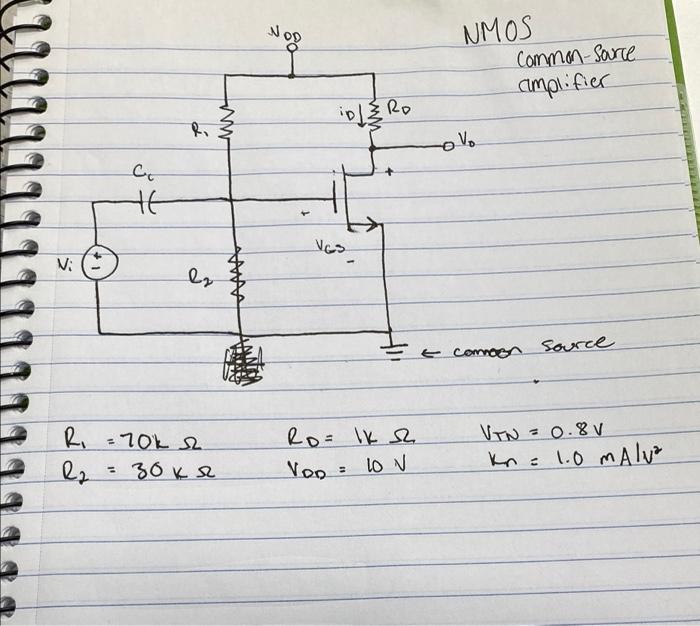 NMOS
common-source
amplifier
VDD
R1
iD
RD
Vo
Cc
+
+
VGS
-
Vi
+
-
R2
← common source
R1 = 70k Ω
RD = 1k Ω
VTN = 0.8V
R2 = 30 k Ω
VDD = 10 V
Kn = 1.0 mA/V²